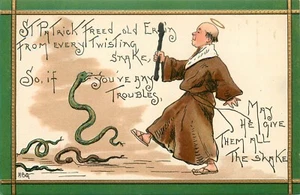 St Patrick freed old Erin
from every twisting
snake,
So, if you've any
troubles,
May
He give
them all
the shake
HBG